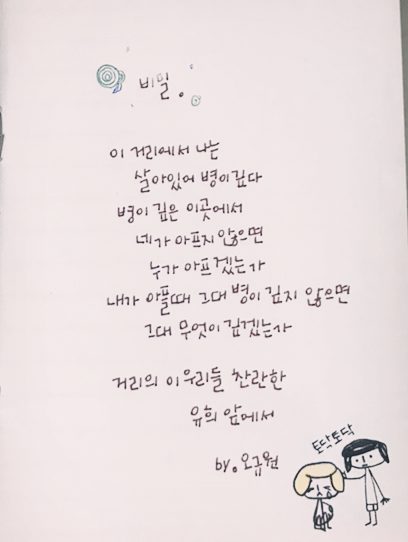 비밀.
이 거리에서 나는
살아있어 병이 깊다
병이 깊은 이곳에서
네가 아프지 않으면
누가 아프겠는가
내가 아플때 그대 병이 깊지 않으면
그대 무엇이 깊겠는가
거리의 이 우리들 찬란한
유희 앞에서
by. 오규원
토닥토닥